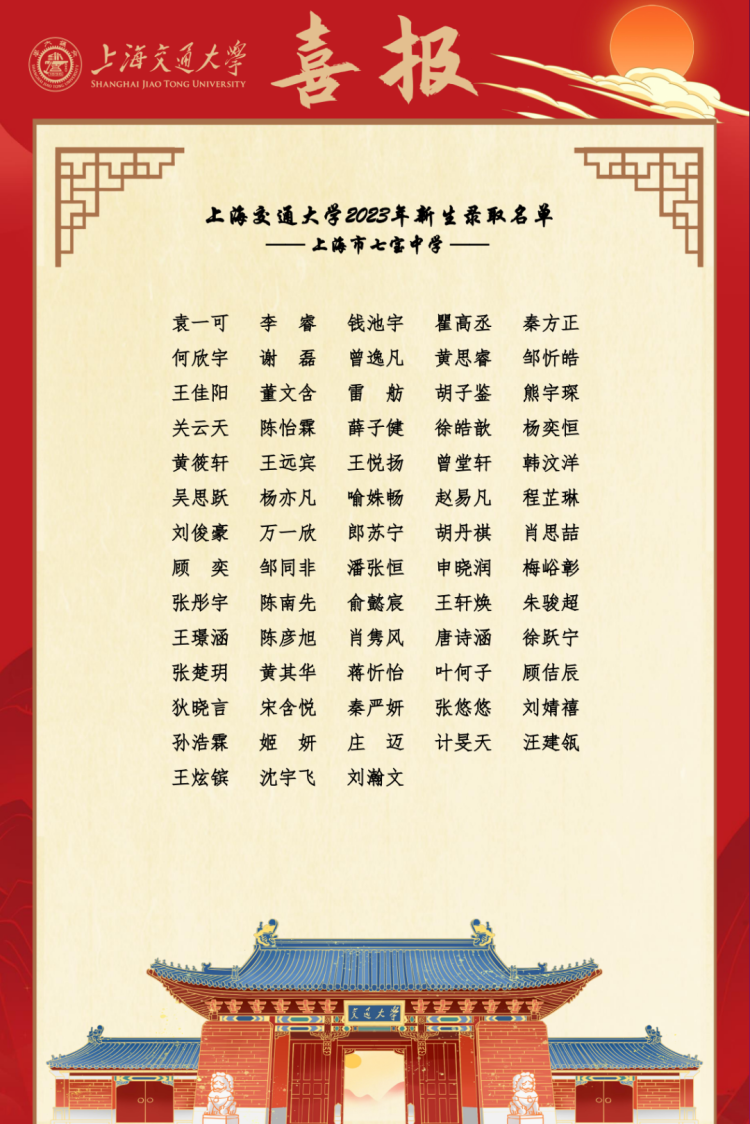 上海交通大学
SHANGHAI JIAO TONG UNIVERSITY
喜报
上海交通大学2023年新生录取名单
——上海市七宝中学——
袁一可 李睿 钱池宇 瞿高丞 秦方正
何欣宇 谢磊 曾逸凡 黄思睿 邹忻皓
王佳阳 董文含 雷舫 胡子鉴 熊宇琛
关云天 陈怡霖 薛子健 徐皓歆 杨奕恒
黄筱轩 王远宾 王悦扬 曾堂轩 韩汶洋
吴思跃 杨亦凡 喻姝畅 赵易凡 程芷琳
刘俊豪 万一欣 郎苏宁 胡丹祺 肖思喆
顾奕 邹同非 潘张恒 申晓润 梅峪彰
张彤宇 陈南先 俞懿宸 王轩焕 朱骏超
王璟涵 陈彦旭 肖隽风 唐诗涵 徐跃宁
张楚玥 黄其华 蒋忻怡 叶何子 顾佶辰
狄晓言 宋含悦 秦严妍 张悠悠 刘婧禧
孙浩霖 姬妍 庄迈 计旻天 汪建瓴
王炫镔 沈宇飞 刘瀚文
交通大学